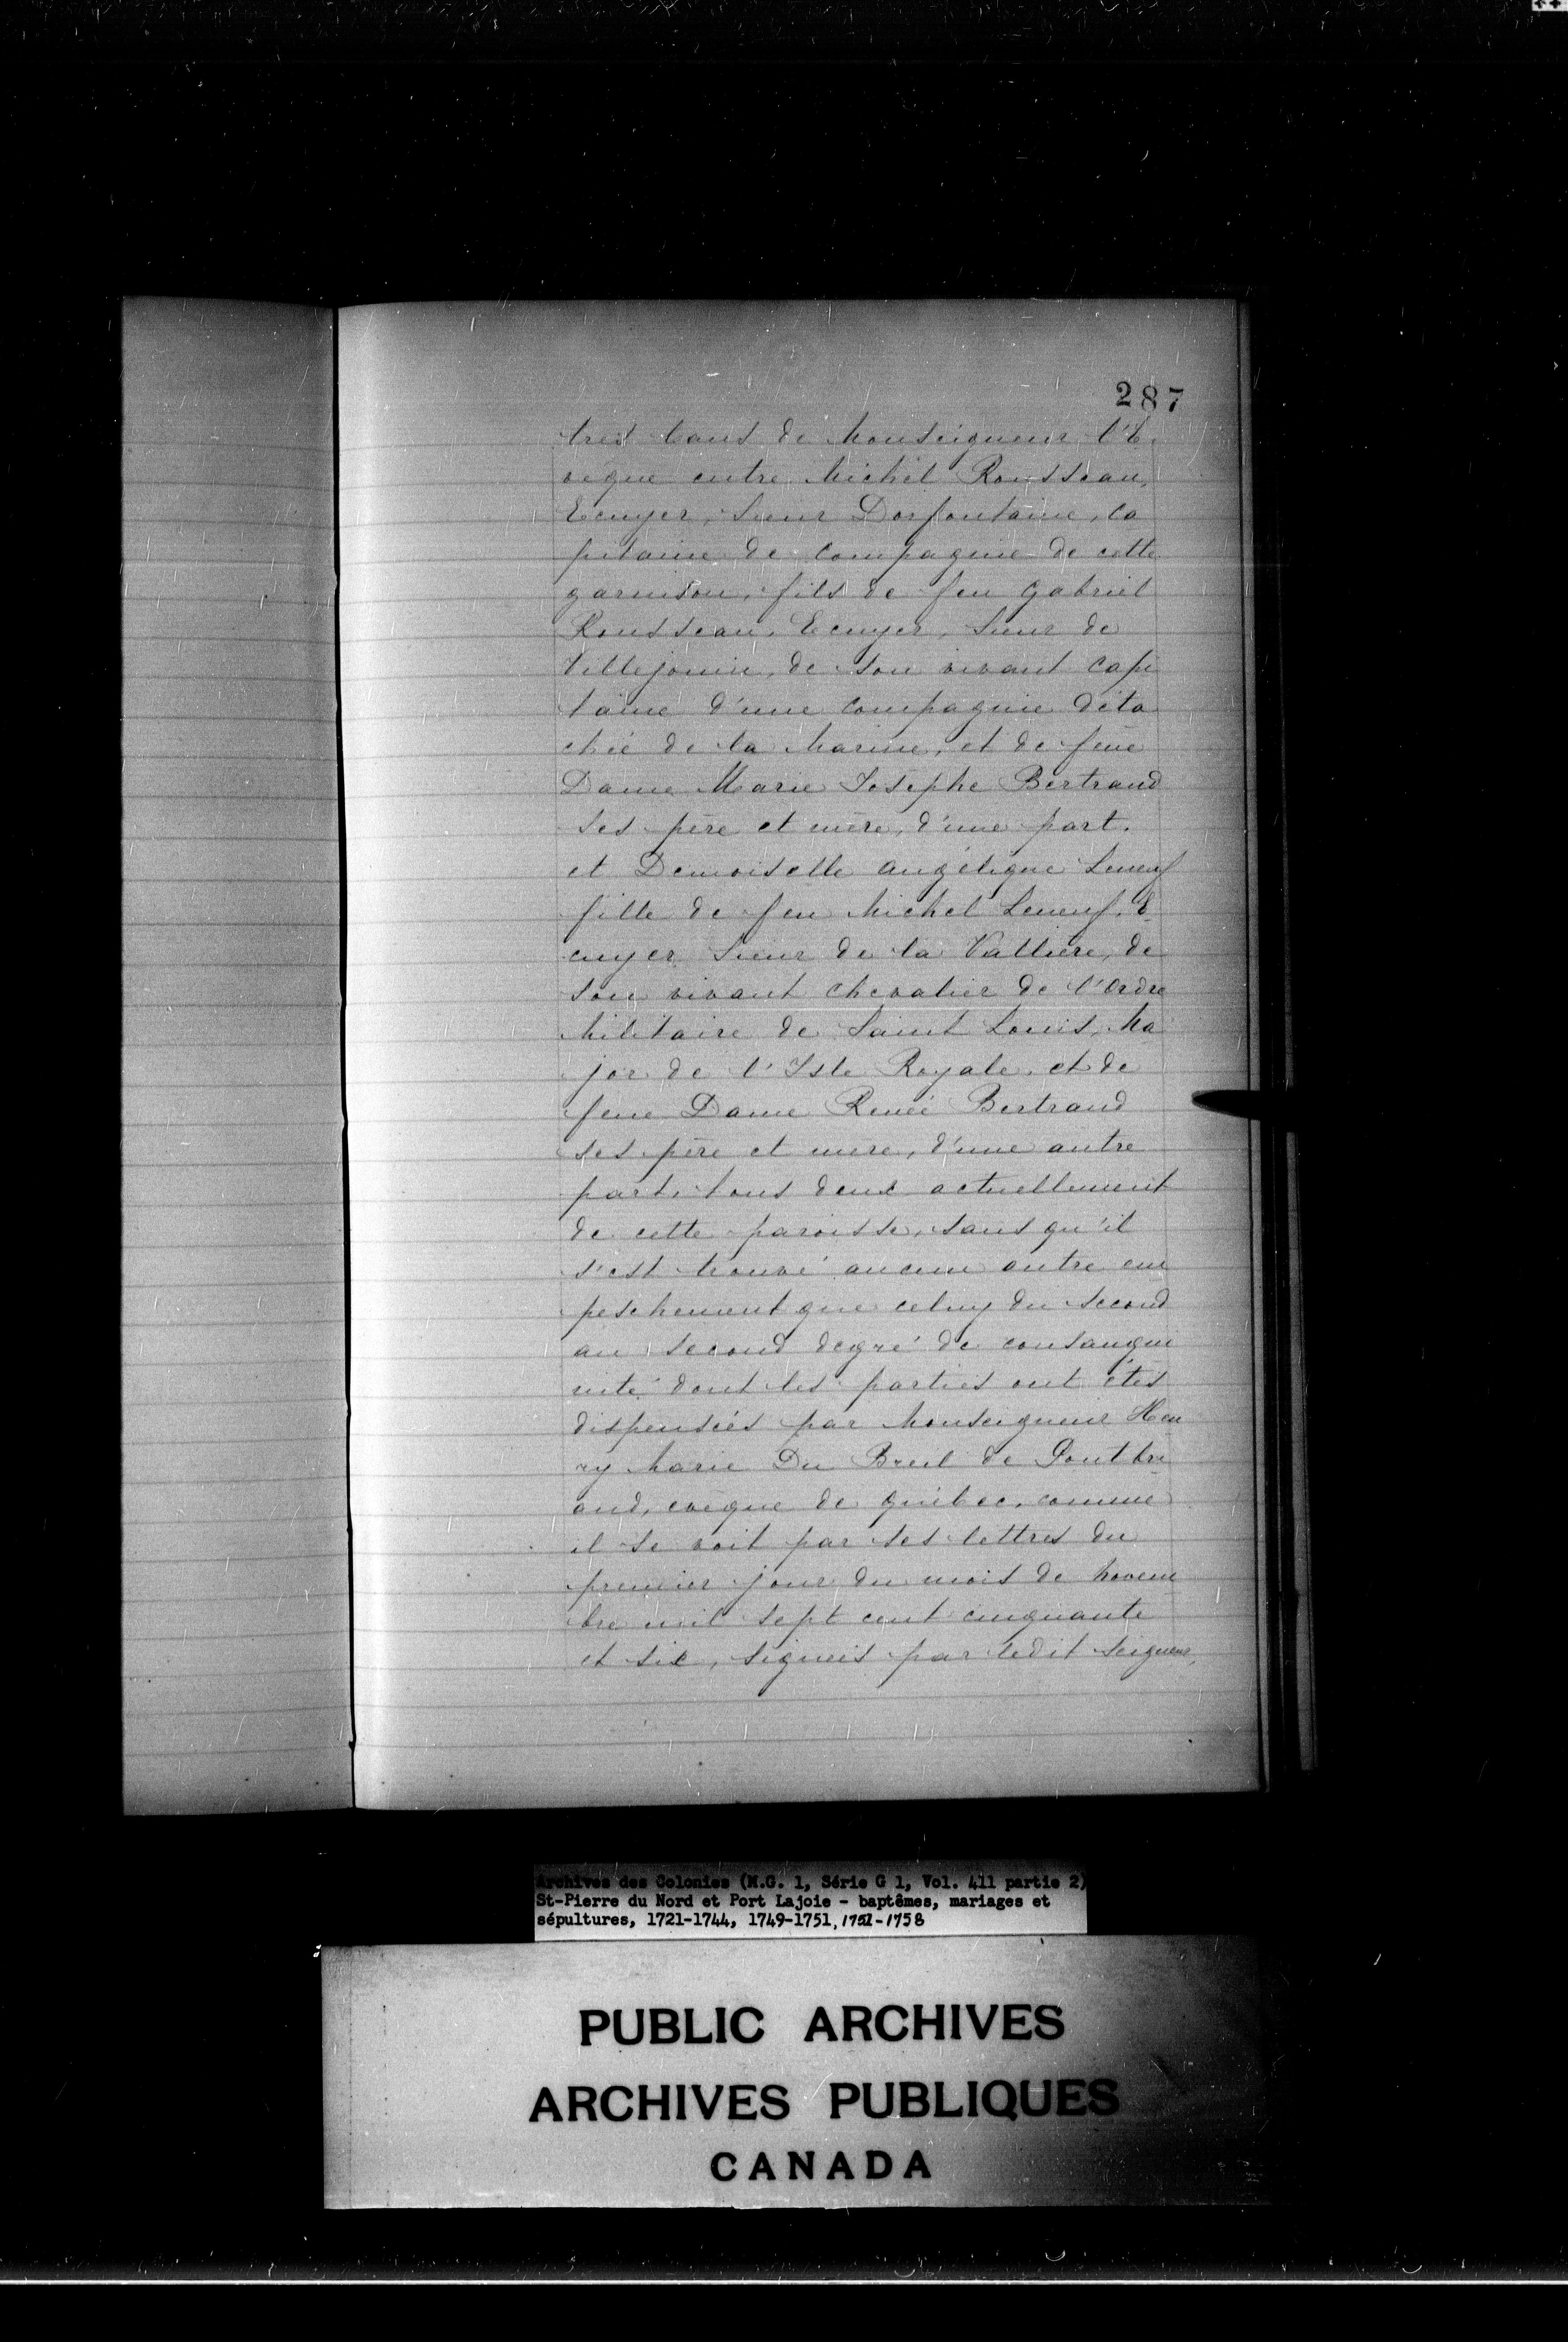 287
tres bans de Monseigneur l'E-
vêque entre Michel Rousseau,
Ecuyer, Sieur Dorfontaine, ca
pitaine de compagnie de cette
garnison, fils de feu Gabriel
Rousseau, Ecuyer, Sieur de
Villejouin, de son vivant capi
taine d'une compagnie déta
chée de la Marine, et de feüe
Dame Marie Josephe Bertrand
ses père et mère, d'une part.
et Demoiselle Angélique Leneuf
fille de feu Michel Leneuf, E-
cuyer Sieur de la Vallière, de
son vivant chevalier de l'Ordre
Militaire de Saint Louis, Ma
jor de l'Isle Royale, et de
feue Dame Renée Bertrand
ses père et mere, d'une autre
part, tous deux actuellement
de cette paroisse, sans qu'il
s'est trouvé aucun autre em
peschement que celuy du second
au second degré de consangui
nité dont les parties ont étés
dispensées par Monseigneur Hen
ry Marie Du Breil de Pontbri
and, evêque de Québec, comme
il se voit par ses lettres du
premier jour du mois de novem
bre mil sept cent cinquante
et six, signeés par ledit Seigneur,
Archives des Colonies (M.G. 1, Série G 1, Vol. 411 partie 2)
St-Pierre du Nord et Port Lajoie - baptêmes, mariages et
sépultures, 1721-1744, 1749-1751, 1751-1758
PUBLIC ARCHIVES
ARCHIVES PUBLIQUES
CANADA